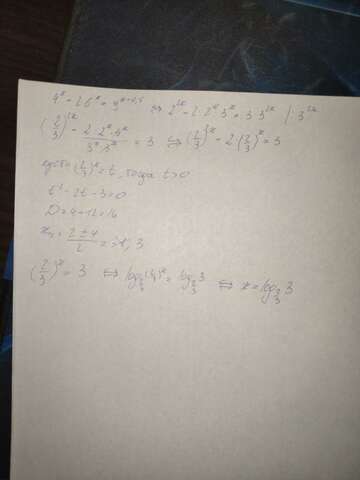 4^x - 2·6^x = 9^{x+0,5} ⇔ 2^{2x} - 2·2^x·3^x = 3·3^{2x} | : 3^{2x}
(2/3)^{2x} - 2·2^x·3^x / 3^x·3^x = 3 ⇔ (2/3)^{2x} - 2·(2/3)^x = 3
пусть (2/3)^x = t, тогда t>0
t² - 2t - 3 = 0
D = 4 + 12 = 16
= 2±4 / 2 = -1, 3
(2/3)^x = 3 ⇔ log_{2/3} (2/3)^x = log_{2/3} 3 ⇔ x = log_{2/3} 3